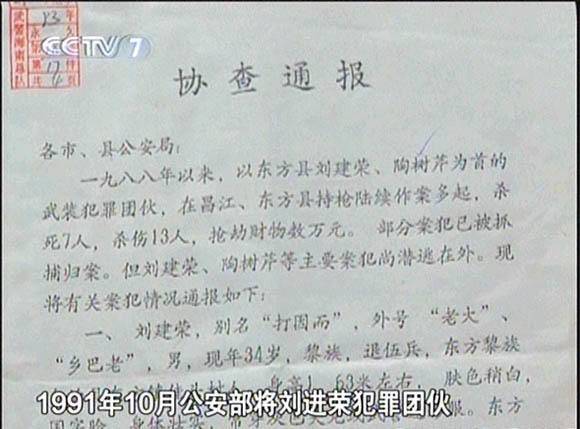 CCTV 7
协查通报
各市、县公安局:
一九八八年以来，以东方县刘建荣、陶树芹为首的
武装犯罪团伙，在昌江、东方县持枪陆续作案多起，杀
死7人，杀伤13人，抢劫财物数万元。 部分案犯已被抓
捕归案。但刘建荣、陶树芹等主要案犯尚潜逃在外。现
将有关案犯情况通报如下:
一、刘建荣，别名“打因而”，外号 “老大”、
“乡巴老”，男，现年34岁，黎族，退伍兵，东方黎族
身高1.63米左右， 肤色稍白，
1991年10月公安部将刘进荣犯罪团伙
东方